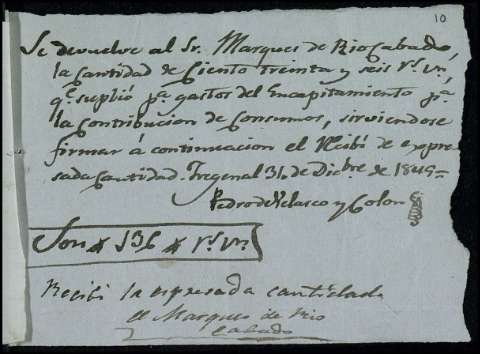 10
Se devuelve al Sr. Marques de Rio Cabado,
la Cantidad de Ciento treinta y seis rs. vn,
qe. suplió pa. gastos del Encapitamiento pa.
la Contribucion de Consumos, sirviendose
firmar á continuacion el Recibí de expre
sada Cantidad. Fregenal 31 de Dicbre de 1845=
Pedro de Velasco y Colon
Son # 136 # rs. vn.
Recibí la espresada cantidad
El Marques de Rio
Cabado